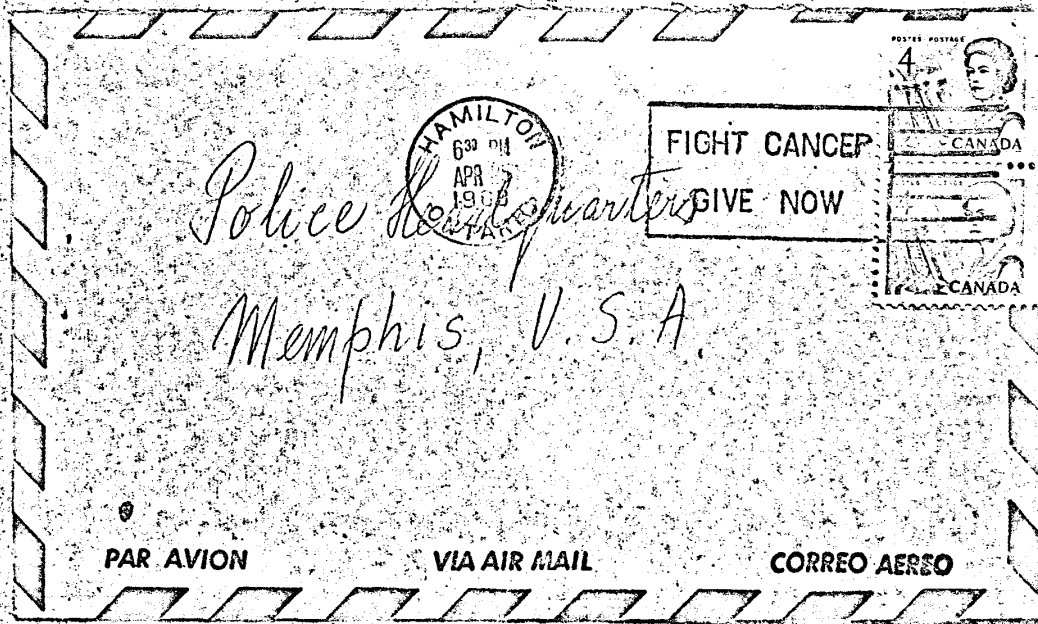 POSTES POSTAGE
4
CANADA
CANADA
HAMILTON
6³⁰ PM
APR
1968
ONTARIO
FIGHT CANCER
GIVE NOW
Police Headquarters
Memphis, U.S.A.
PAR AVION
VIA AIR MAIL
CORREO AEREO